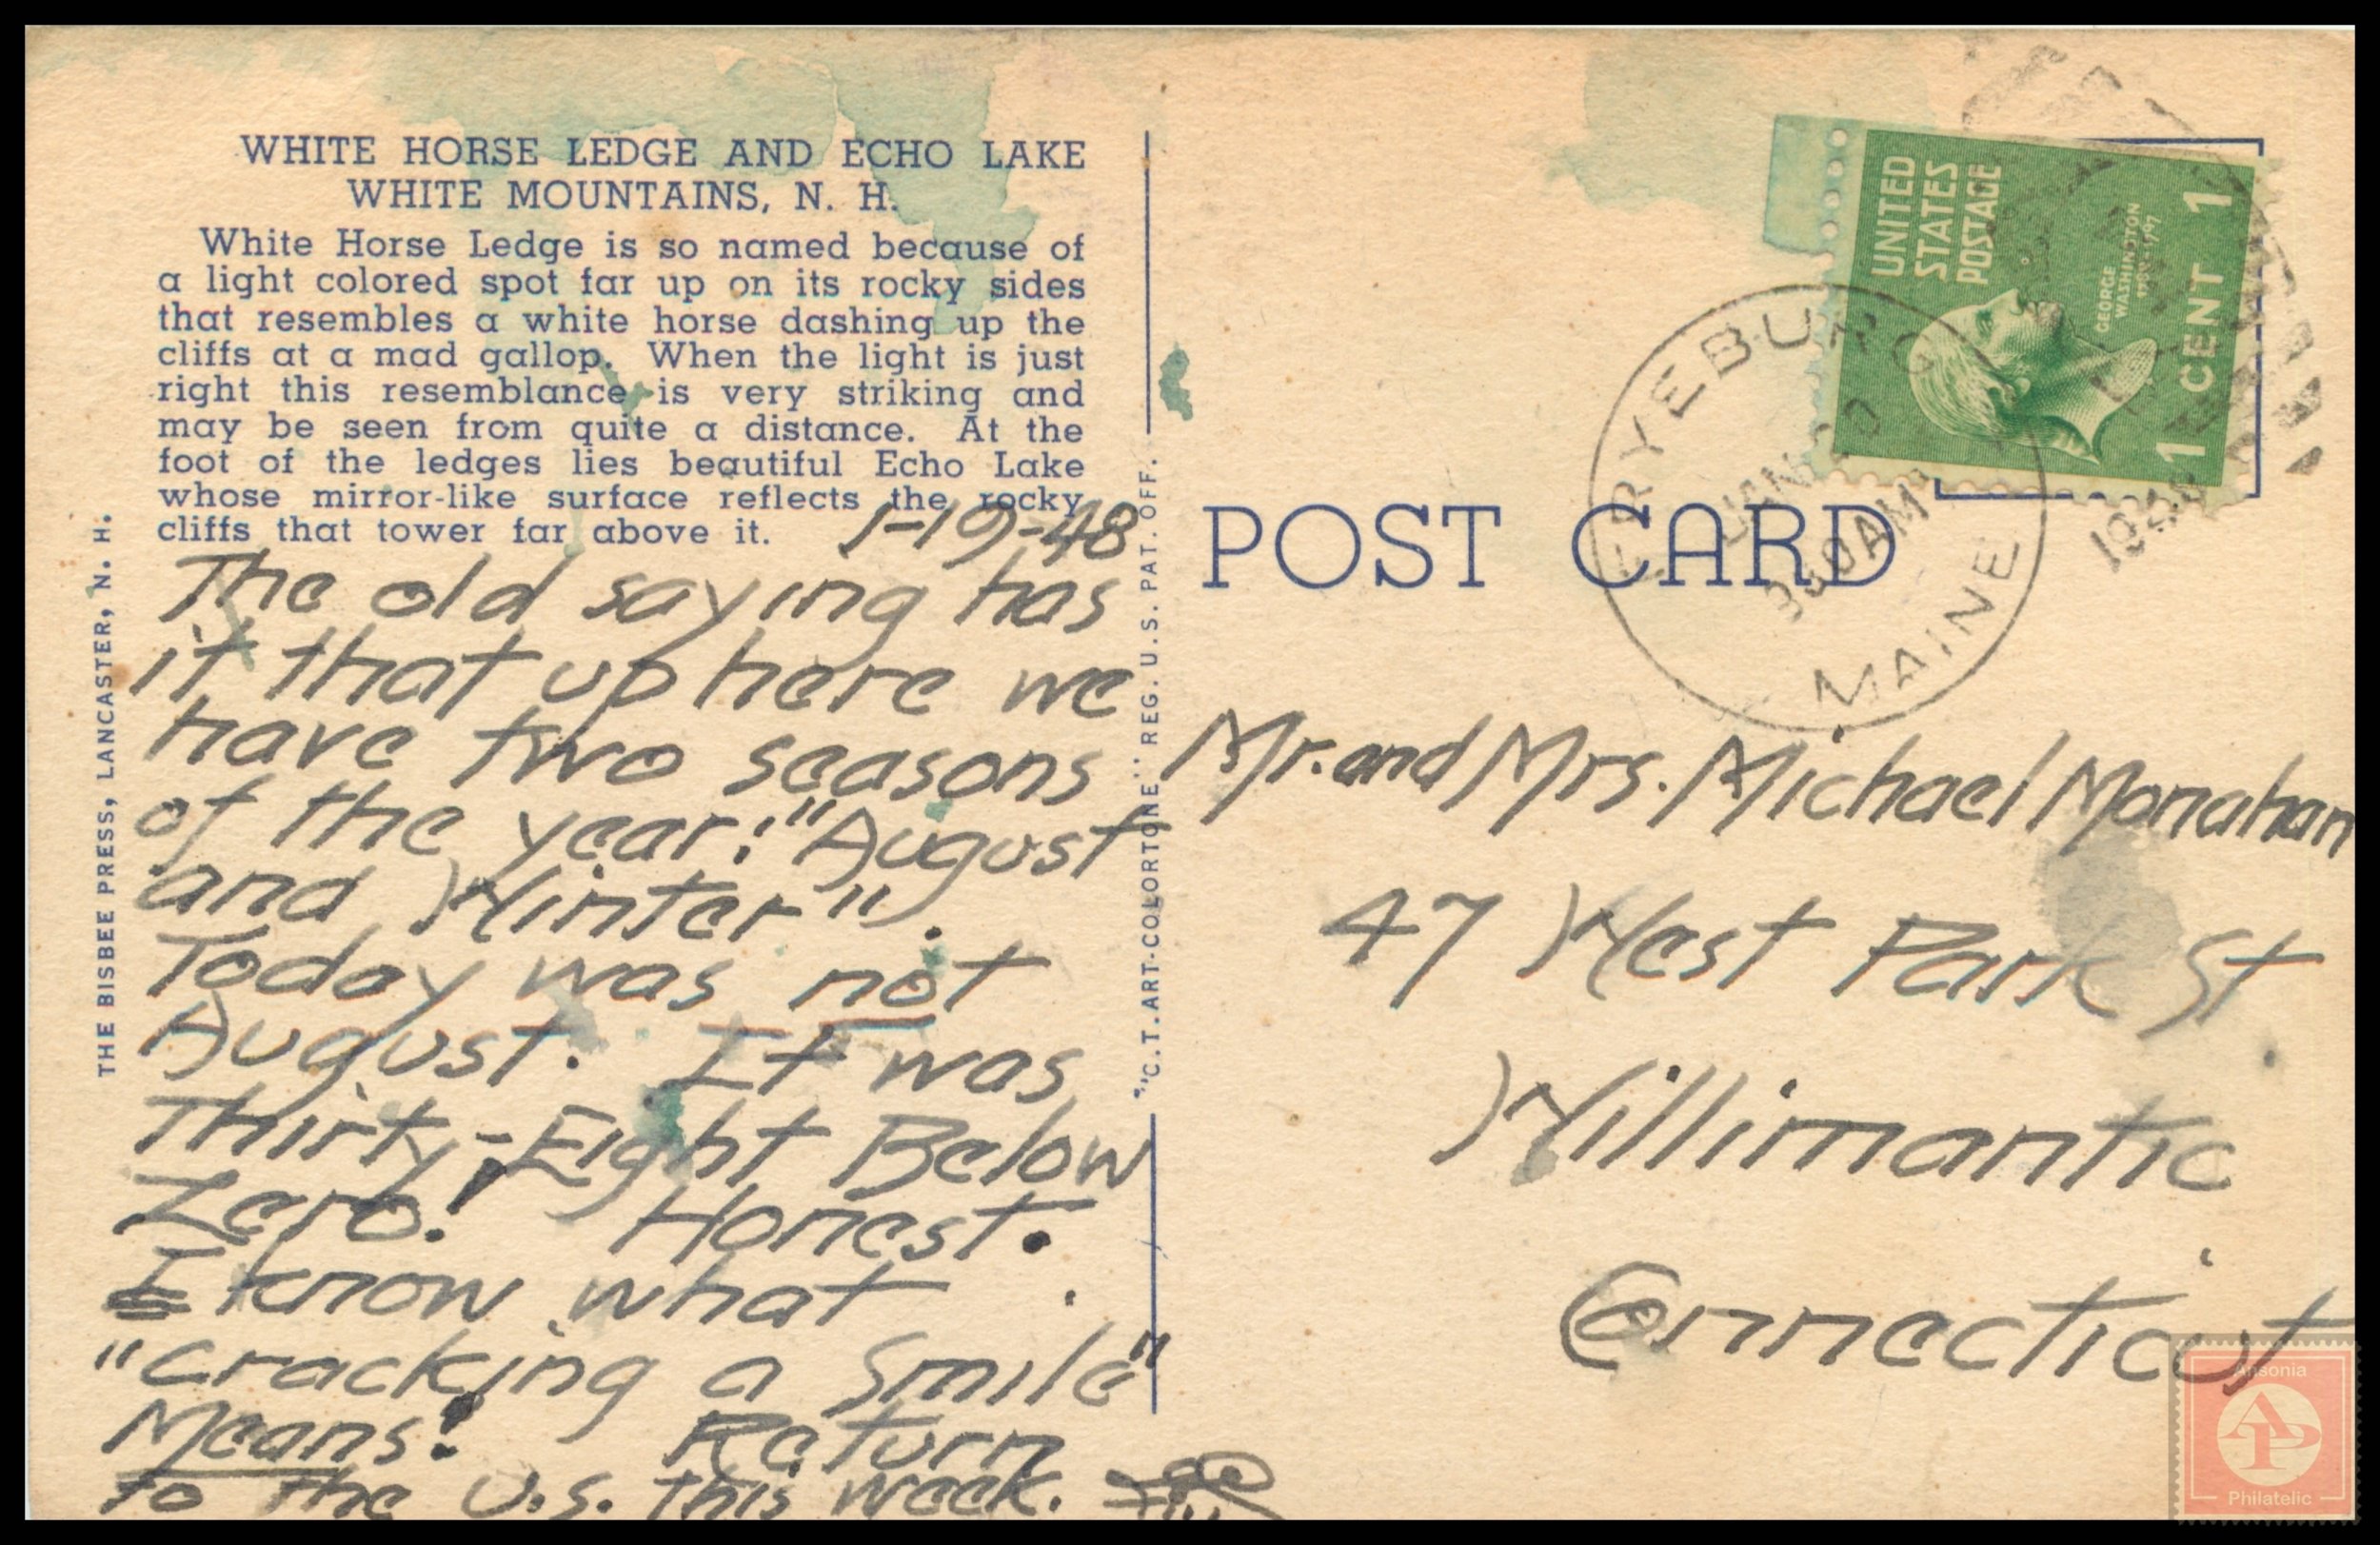 WHITE HORSE LEDGE AND ECHO LAKE
WHITE MOUNTAINS, N. H.
White Horse Ledge is so named because of
a light colored spot far up on its rocky sides
that resembles a white horse dashing up the
cliffs at a mad gallop. When the light is just
right this resemblance is very striking and
may be seen from quite a distance. At the
foot of the ledges lies beautiful Echo Lake
whose mirror-like surface reflects the rocky
cliffs that tower far above it.
1-19-48
The old saying has
it that up here we
have two seasons
of the year: "August
and Winter".
Today was not
August. It was
Thirty-Eight Below
Zero! Honest.
I know what
"cracking a smile"
Means! Return
to the U.S. this week.
THE BISBEE PRESS, LANCASTER, N. H.
"C. T. ART-COLORTONE" REG. U. S. PAT. OFF.
POST CARD
UNITED
STATES
POSTAGE
GEORGE
WASHINGTON
1 CENT 1
FRYEBURG
JAN 20
AM
MAINE
Mr. and Mrs. Michael Monahan
47 West Park St.
Willimantic
Connecticut
Ansonia
AP
Philatelic